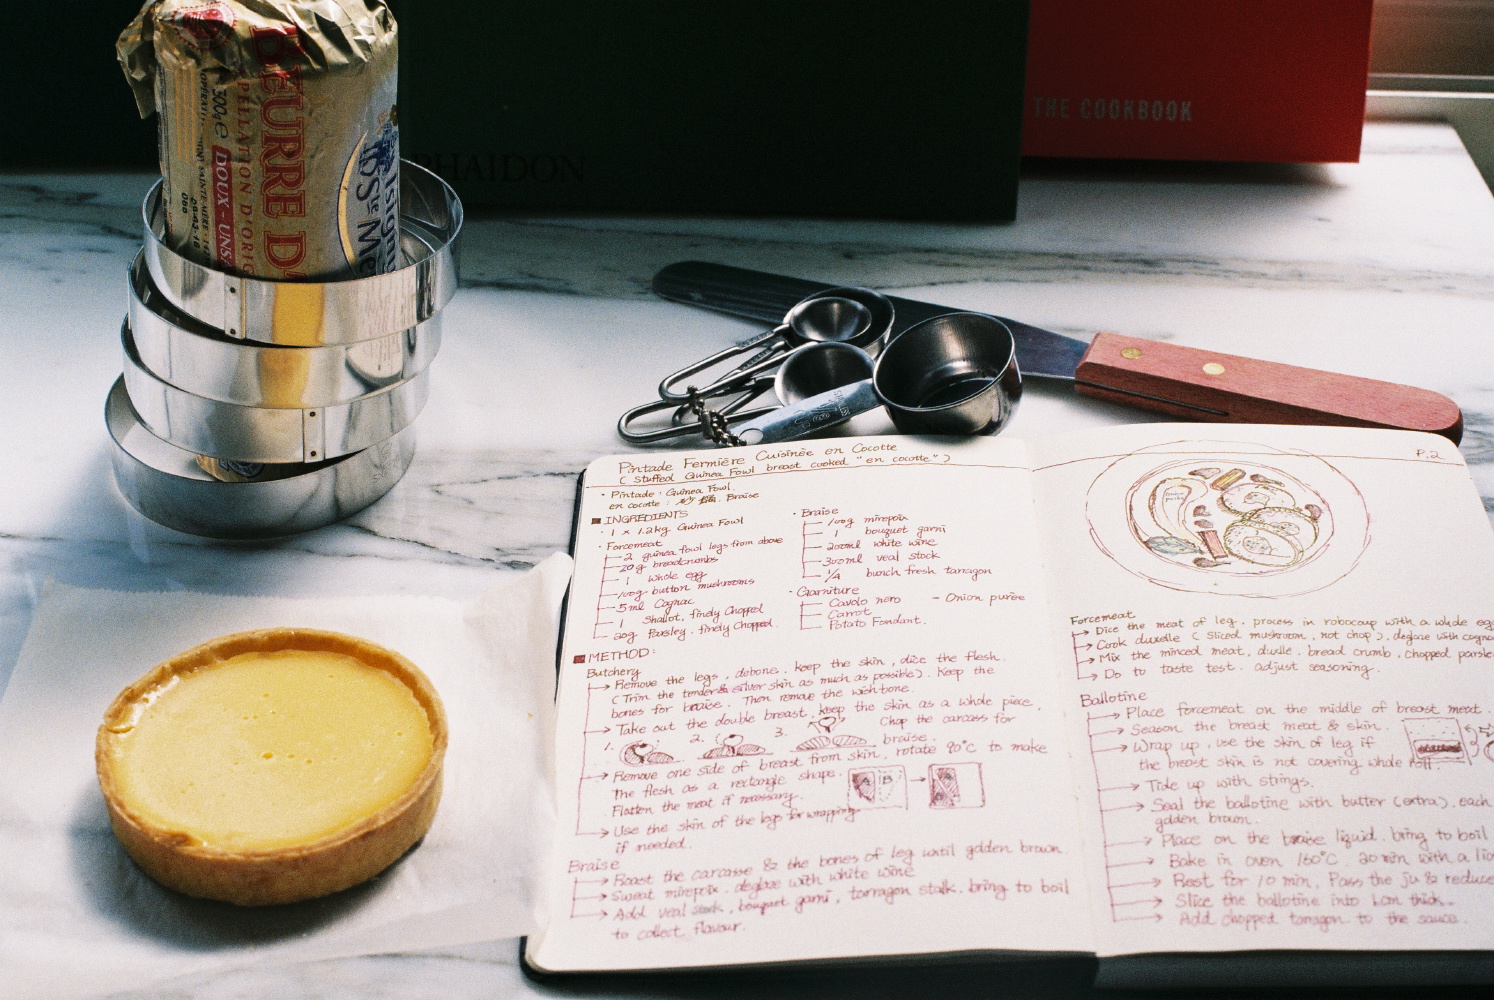 BEURRE D'
APPELLATION D'ORIG
DOUX - UNSA
500g e
Isigny
Ste Mè
PHAIDON
THE COOKBOOK
Pintade Fermière Cuisinée en Cocotte
( Stuffed Guinea Fowl breast cooked "en cocotte" )
· Pintade : Guinea Fowl.
en cocotte : Braise
INGREDIENTS
· 1 x 1.2kg Guinea Fowl
· Forcemeat
2 guinea fowl legs from above
20g breadcrumbs
1 whole egg
100g button mushrooms
5ml Cognac
1 Shallot, finely Chopped
20g Parsley, finely Chopped.
· Braise
100g mirepoix
1 bouquet garni
200ml white wine
300ml veal stock
1/4 bunch fresh tarragon
· Garniture
Cavolo nero - Onion purée
Carrot
Potato Fondant.
METHOD:
Butchery
Remove the legs, debone. keep the skin, dice the flesh.
(Trim the tender & silver skin as much as possible). Keep the
bones for braise. Then remove the wishbone.
Take out the double breast, keep the skin as a whole piece,
Chop the carcass for
braise.
1. 2. 3.
Remove one side of breast from skin, rotate 90°C to make
the flesh as a rectangle shape.
Flatten the meat if necessary.
A B
Use the skin of the legs for wrapping
if needed.
Braise
Roast the carcasse & the bones of leg until golden brown.
Sweat mirepoix. deglaze with white wine
Add veal stock, bouquet garni, tarragon stalk. bring to boil
to collect flavour.
P.2
Onion purée
Forcemeat
Dice the meat of leg. process in robocoup with a whole egg
Cook duxelle ( Sliced mushroom, not chop ), deglaze with cogna
Mix the minced meat, duxlle. bread crumb. Chopped parsle
Do to taste test. adjust seasoning.
Ballotine
Place forcemeat on the middle of breast meat.
Season the breast meat & skin.
Wrap up, use the skin of leg if
the breast skin is not covering whole roll.
Tide up with strings.
Seal the ballotine with butter (extra). each
golden brown.
Place on the braise liquid. bring to boil
Bake in oven 160°C. 20 min with a lid
Rest for 10 min, Pass the ju & reduce
Slice the ballotine into 1cm thick.
Add chopped tarragon to the sauce.